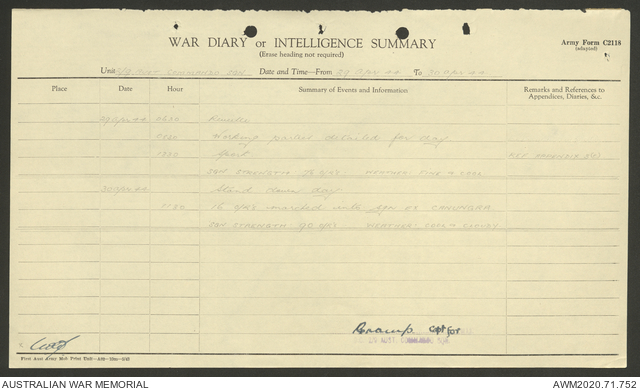 WAR DIARY or INTELLIGENCE SUMMARY
(Erase heading not required)
Army Form C2118
(adapted)
Unit Date and Time—From 29 Apr 44 To 30 Apr 44
Place Date Hour Summary of Events and Information Remarks and References to Appendices, Diaries, &c.
29 Apr 44 0630 Reveille
Working parties detailed for day
Sport (SEE APPENDIX
SQN STRENGTH 76 O/RS WEATHER: FINE & COOL
30 Apr 44 Stand down day
16 O/RS marched into SQN ex CANUNGRA
SQN STRENGTH 90 O/RS WEATHER: COOL CLOUDY
Capt for
First Aust Army
AUSTRALIAN WAR MEMORIAL
AWM2020.71.752